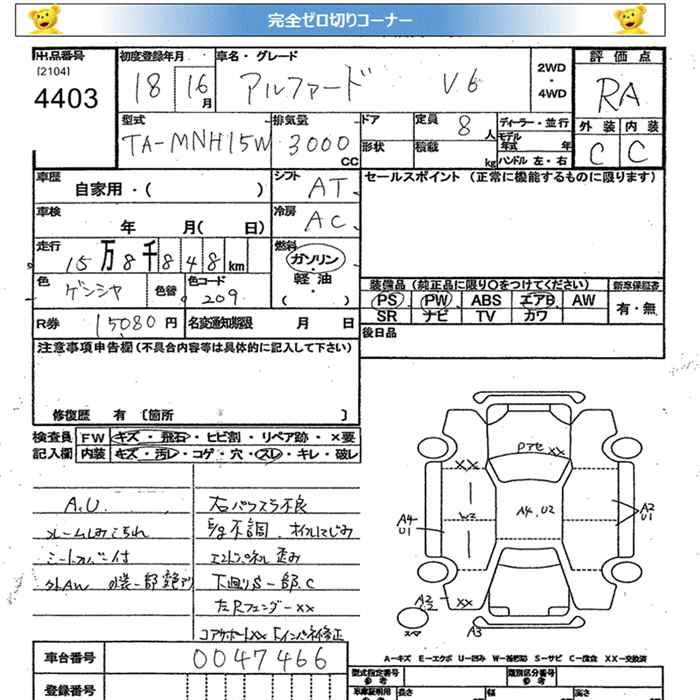 完全ゼロ切りコーナー
出品番号 初度登録年月 車名・グレード 評価点
[2104] 18 16月 アルファード V6 2WD・4WD RA
4403
型式 排気量 ドア 定員 8人 ディーラー・並行 外装 内装
TA-MNH15W 3000CC 形状 積載 kg モデル年式 年 C C
ハンドル 左・右
車歴 自家用・( ) シフト AT セールスポイント (正常に機能するものに限ります)
車検 年 月( 日) 冷房 AC
走行 15万8千848km 燃料 ガソリン・軽油・( )
色 ゲンシヤ 色替 色コード 209
装備品 (純正品に限り○をつけてください) 新車保証書
PS PW ABS エアB AW 有・無
SR ナビ TV カワ
R券 15080円 名変通知期限 月 日 後日品
注意事項申告欄 (不具合内容等は具体的に記入して下さい)
修復歴 有 [箇所 ]
検査員記入欄 FW キズ・飛石・ヒビ割・リペア跡・×要
内装 キズ・汚レ・コゲ・穴・スレ・キレ・破レ
A.U.
シートカバー付
外AW
右パワスラ不良
歪み
下廻りS一部.C
左Rフェンダーxx
修正
Pアセ xx
xx
W2 A4.U2 A2
U1
A4
U1
A2
xx
A3
A-キズ E-エクボ U-凹み W-補修跡 S-サビ C-腐食 XX-交換済
車台番号 0047466
登録番号
型式指定番号 参考 類別区分番号 参考
長さ 幅 高さ